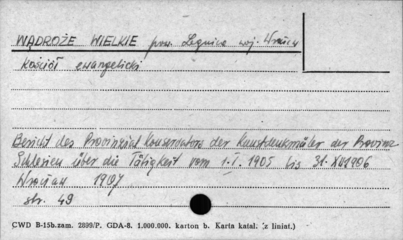 WĄDROŻE WIELKIE pow. Legnica woj. Wrocław
kościół ewangelicki
Bericht des Provinzial Konservators der Kunstdenkmäler der Provinz
Schlesien über die Tätigkeit vom 1.I.1905 bis 31.XII.1906
Wrocław 1907
str. 49
CWD B-15b.zam. 2899/P. GDA-8. 1.000.000. karton b. Karta katal. (z liniat.)